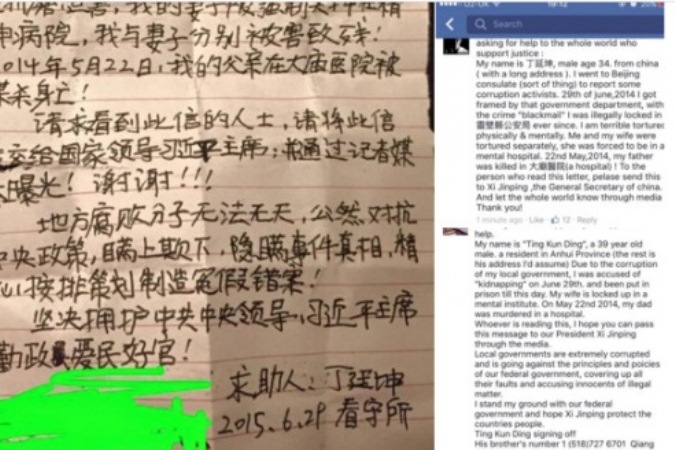 神病院,我与妻子分别被害致残!
2014年5月22日,我的父亲在大庙医院被
谋杀身亡!
请求看到此信的人士,请将此信
交给国家领导习近平主席,并通过记者媒
曝光!谢谢!!!
地方腐败分子无法无天,公然对抗
中央政策,瞒上欺下,隐瞒事件真相,精
心按排策划制造冤假错案!
坚决拥护中共中央领导,习近平主席
勤政爱民好官!
求助人:丁延坤
2015.6.29 看守所
19:12
20%
Search
asking for help to the whole world who
support justice :
My name is 丁延坤, male age 34. from china
( with a long address ). I went to Beijing
consulate (sort of thing) to report some
corruption activists. 29th of june,2014 I got
framed by that government department, with
the crime "blackmail" I was illegally locked in
靈璧縣公安局 ever since. I am terrible torture
physically & mentally. Me and my wife were
tortured separately, she was forced to be in a
mental hospital. 22nd May,2014, my father
was killed in 大廟醫院(a hospital) ! To the
person who read this letter, pelase send this
to Xi Jinping ,the General Secretary of china.
And let the whole world know through media
Thank you!
1 minute ago · Like · 12 · Reply
help.
My name is "Ting Kun Ding", a 39 year old
male. a resident in Anhui Province (the rest is
his address I'd assume) Due to the corruption
of my local government, I was accused of
"kidnapping" on June 29th. and been put in
prison till this day. My wife is locked up in a
mental institute. On May 22nd 2014, my dad
was murdered in a hospital.
Whoever is reading this, I hope you can pass
this message to our President Xi Jinping
through the media.
Local governments are extremely corrupted
and is going against the principles and poicies
of our federal government, covering up all
their faults and accusing innocents of illegal
matter.
I stand my ground with our federal
government and hope Xi Jinping protect the
countries people.
Ting Kun Ding signing off
His brother's number 1 (518)727 6701 Qiang